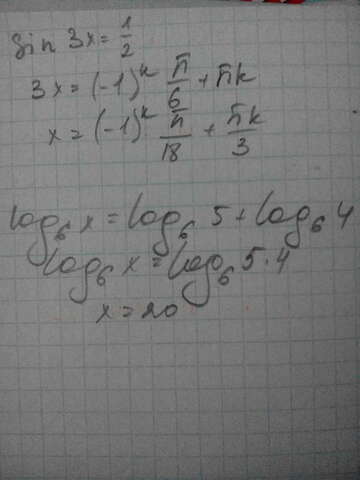 sin 3x = 1/2
3x = (-1)^k π/6 + πk
x = (-1)^k π/18 + πk/3
log₆ x = log₆ 5 + log₆ 4
log₆ x = log₆ 5·4
x = 20